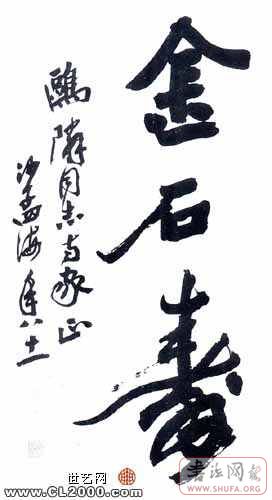 金石寿
鷗隣同志方家正
沙孟海年八十一
世艺网
www.CL2000.com
WWW.SHUFA.ORG